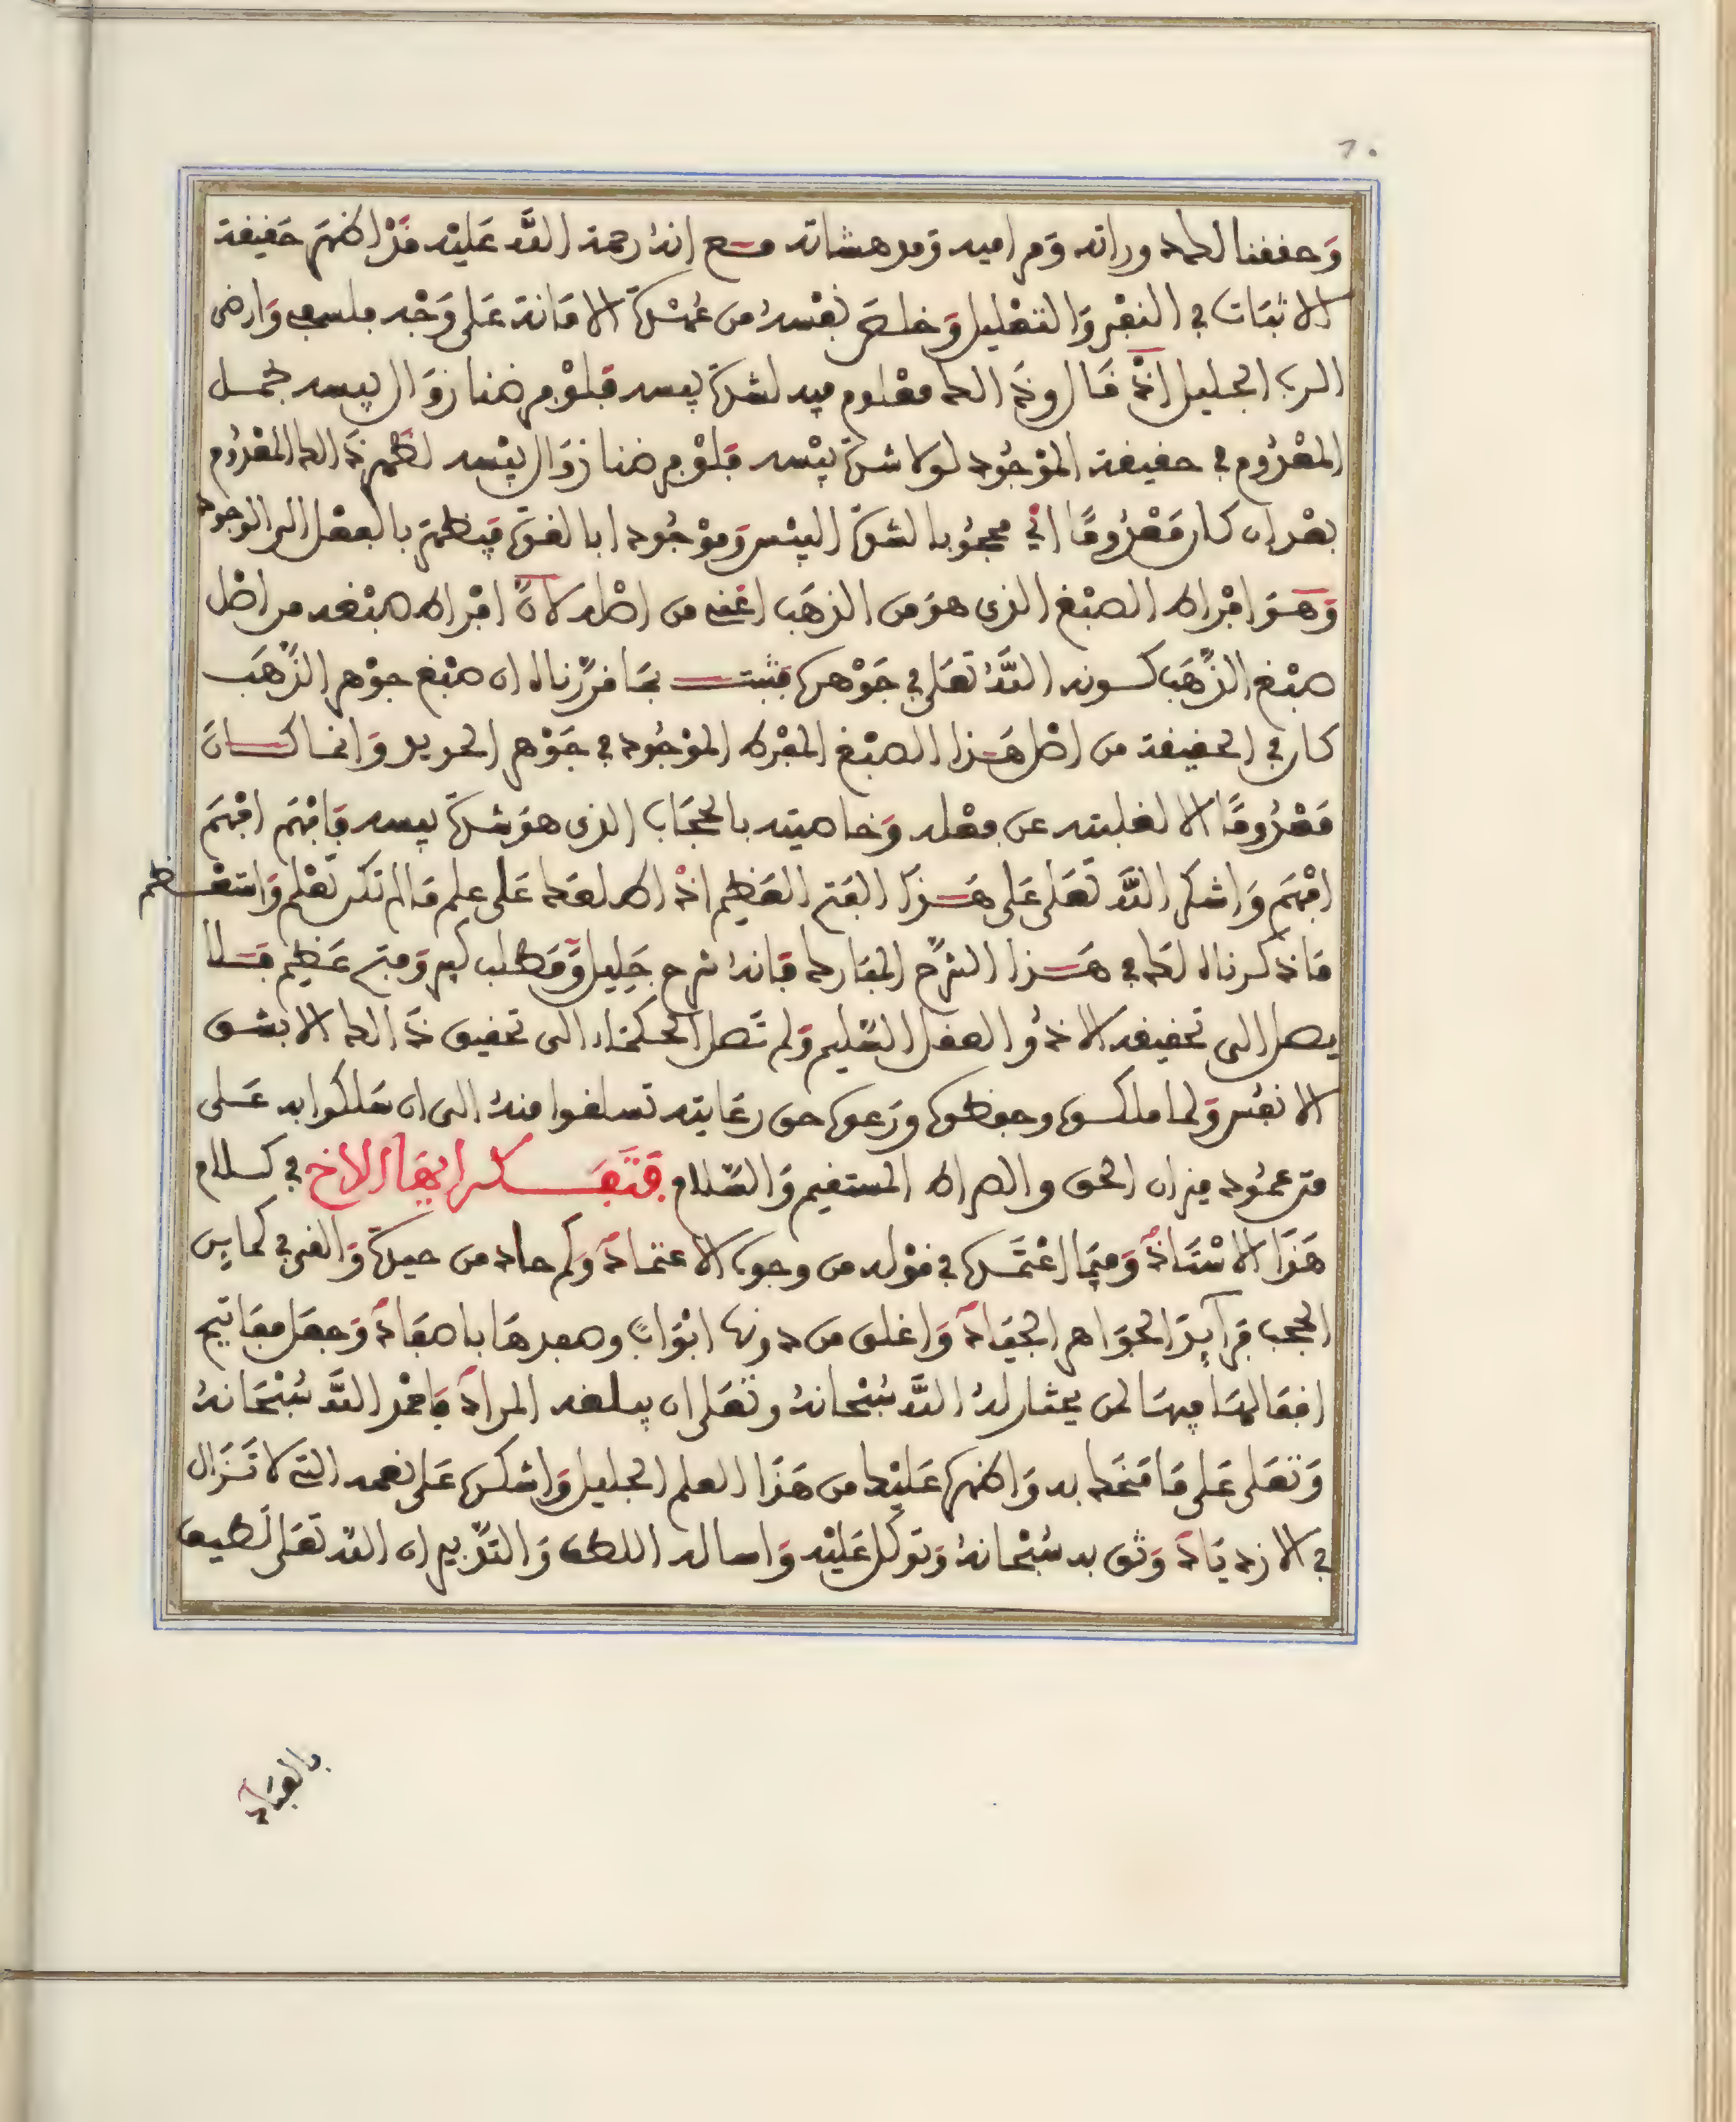 ٦٠
وحققنا لك وراثه ومراميه ومدهشاته مع انه رحمة الله عليه قد اظهر حقيقة
الاثبات في النفي والتعليل وخلص نفسه من عهدة الامانة على وجه وارضى
الرب الجليل اذ قال وذالك معلوم فيه لشدة يبسه فلو فرضنا زوال يبسه فجعل
المعدوم في حقيقة الموجود لولا شدة يبسه فلو فرضنا زوال يبسه لظهر ذالك المعدوم
بعد ان كان معدوما اي محجوبا لشدة اليبس وموجودا بالقوة فيظهر بالفعل الى الوجود
وهو افراط الصبغ الذي هو من الذهب اعني من اصله لان افراط صبغه من اصل
صبغ الذهب كونه الله تعلى في جوهره فثبت بما قررناه ان صبغ جوهر الذهب
كان في الحقيقة من اصل هذا الصبغ المفرط الموجود في جوهر الحديد وانما كان
معدوما الا لغلبته عن فعله وخاصيته بالحجاب الذي هو شدة يبسه فافهم افهم
افهم واشكر الله تعلى على هذا الفتح العظيم اذ اطلعك على علم ما لم تكن تعلم واستعظم
ما ذكرناه لك في هذا الشرح المبارك فانه شرح جليل ومطلب كبير وفتح عظيم فلا
يصل الى تحقيقه الا ذو العقل السليم ولم تصل الحكماء الى تحقيق ذالك الا بشق
الانفس ولما ملكوه وحفظوه ورعوه حق رعايته تسلقوا منه الى ان سلكوا به على
متن عمود ميزان الحق والصراط المستقيم والسلام فتفكر ايها الاخ في كلام
هذا الاستاذ وفيما اعتمده في قوله من وجوه الاعتماد وكم حاد من حيدة والقى في كمايِن
الحجب فرآيد الجواهر الجياد واغلق من دونها ابوابا وصفدها باصفاد وجعل مفاتيح
اقفالها فيها لمن يختار له الله سبحانه وتعلى ان يبلغه المراد فاحمد الله سبحانه
وتعلى على ما منحك به واظهره عليك من هذا العلم الجليل واشكره على نعمه التي لا تزال
في الازدياد وثق به سبحانه وتوكل عليه واساله اللطف والتدبير ان الله تعلى لطيف
بالعباد